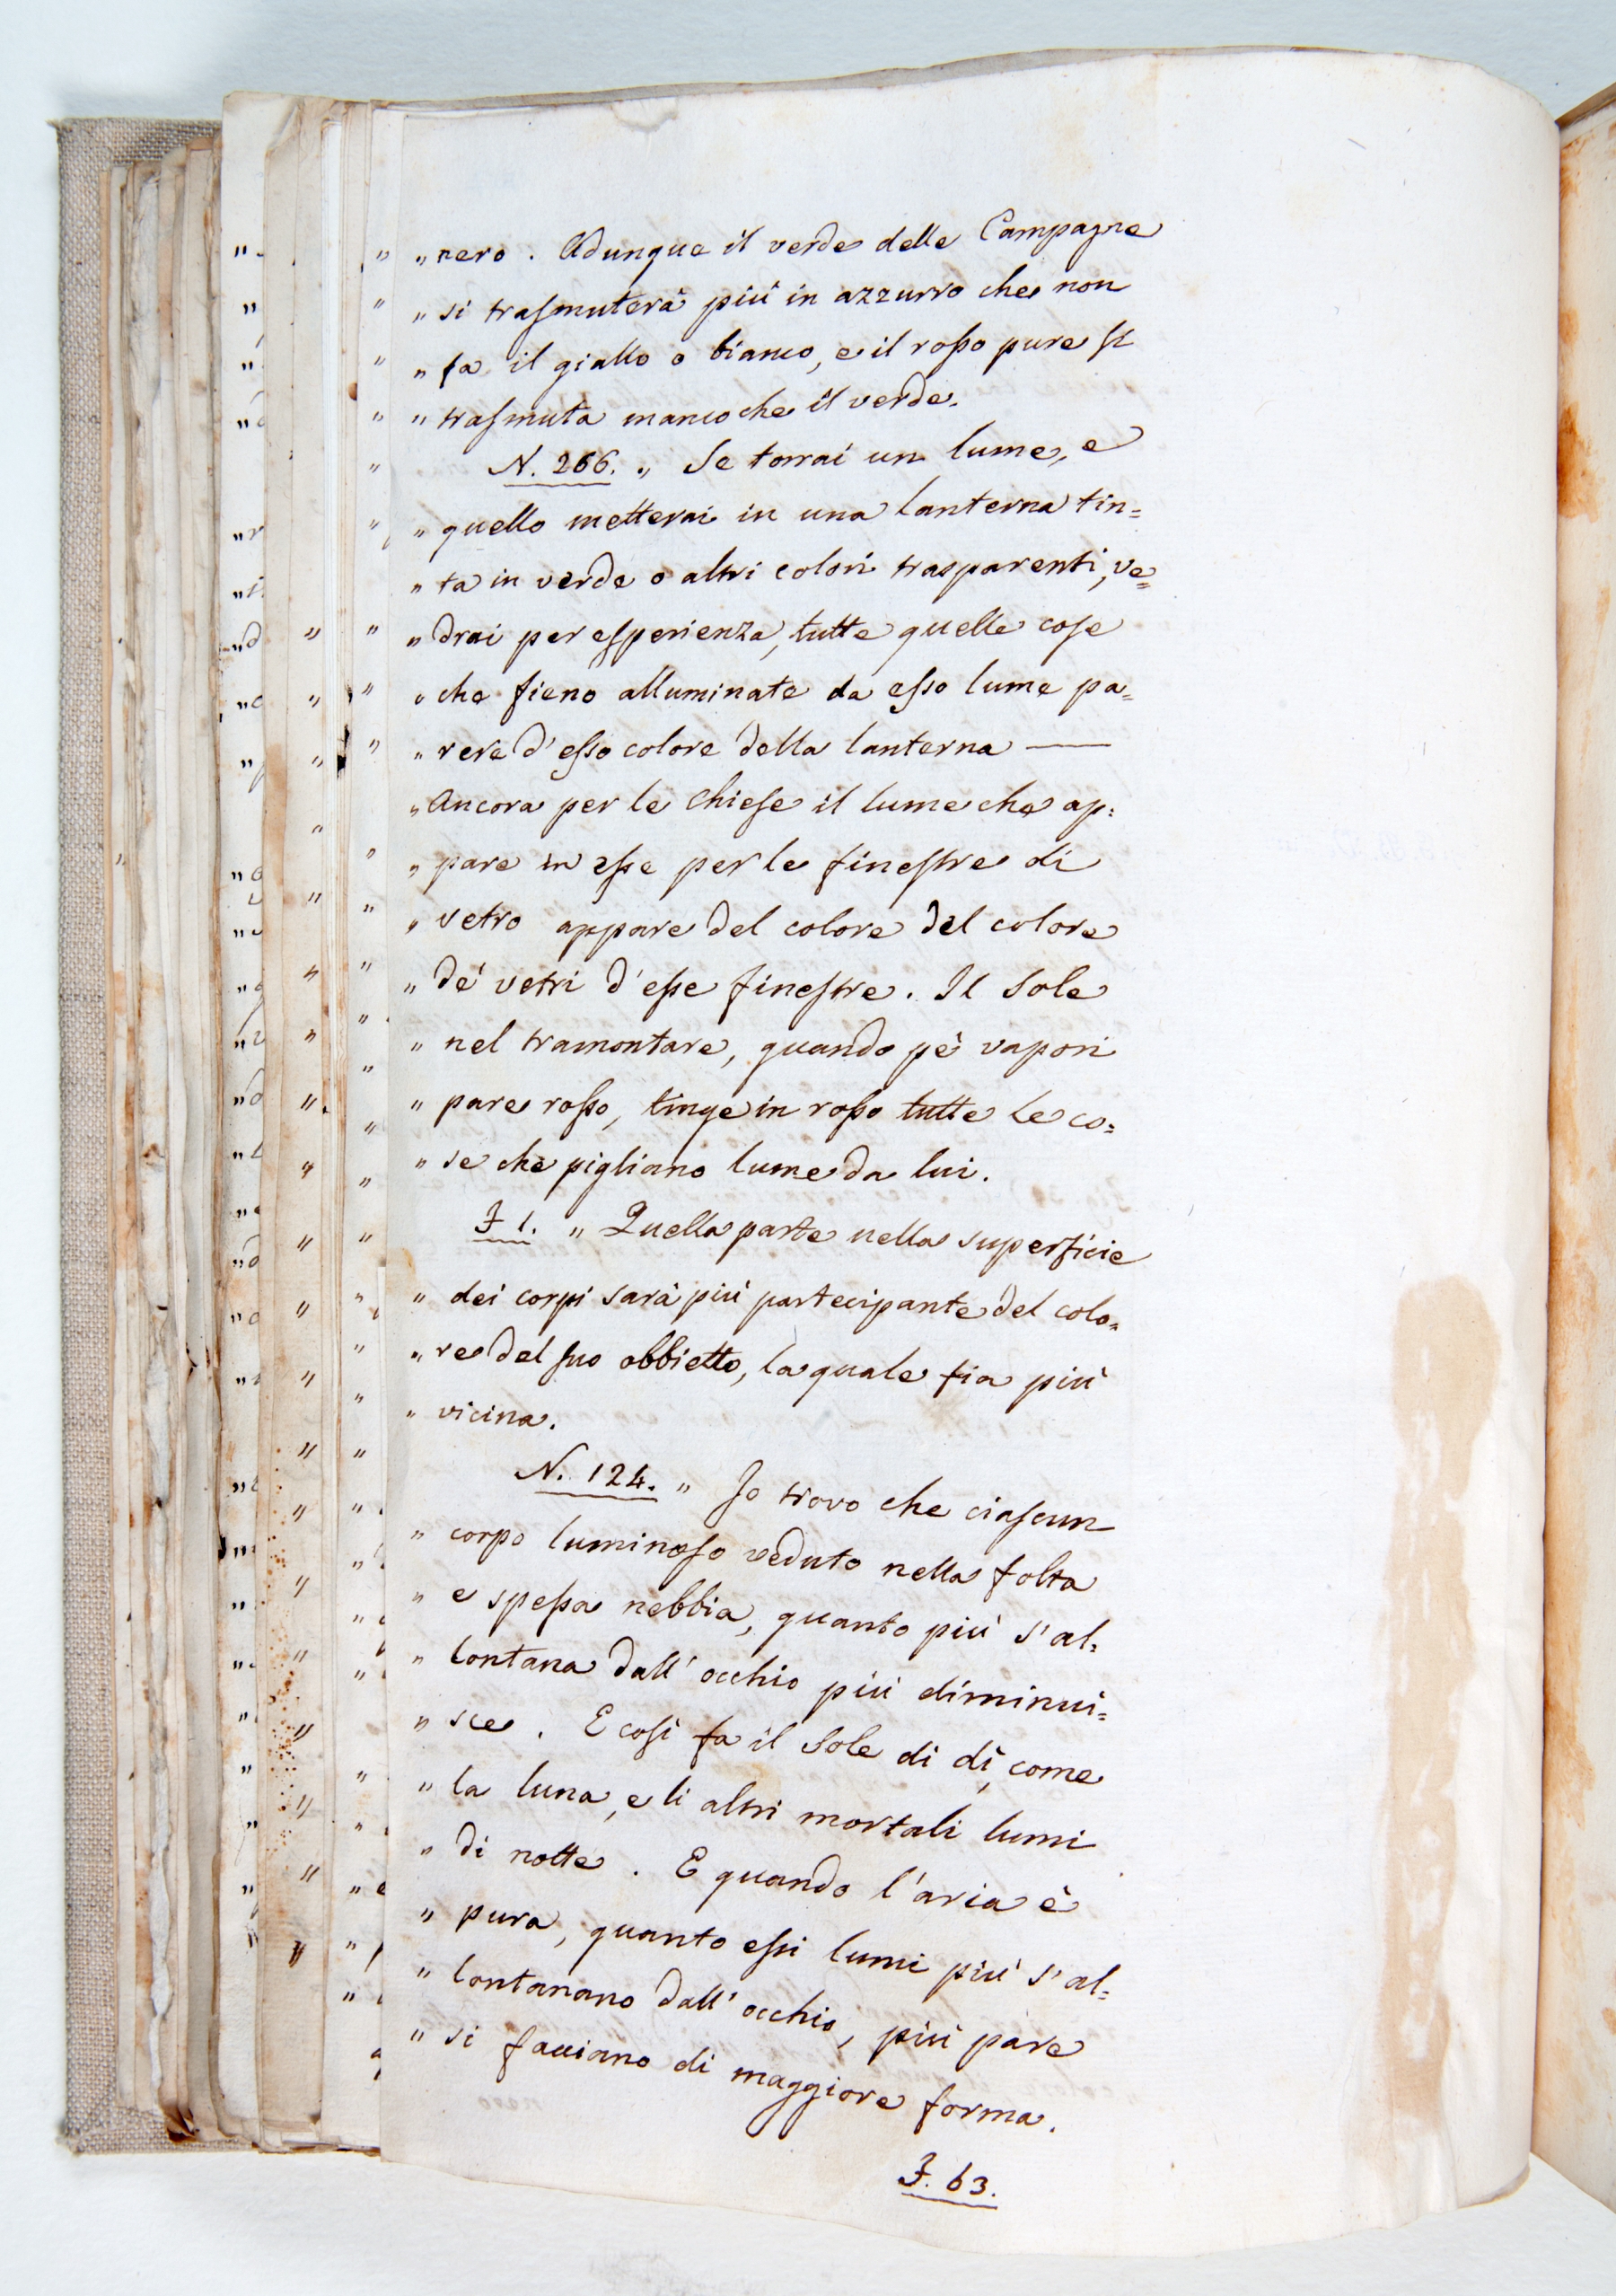 „ nero. Adunque il verde delle Campagne
„ si trasmuterà più in azzurro che non
„ fa il giallo o bianco, e il rosso pure si
„ trasmuta manco che il verde.
N. 266. „ Se torrai un lume, e
„ quello metterai in una lanterna tin=
„ ta in verde o altri colori trasparenti, ve=
„ drai per esperienza, tutte quelle cose
„ che fieno alluminate da esso lume pa=
„ rere d'esso colore della lanterna —
„ Ancora per le chiese il lume che ap=
„ pare in esse per le finestre di
„ vetro appare del colore del colore
„ de' vetri d'esse finestre. Il Sole
„ nel tramontare, quando pe' vapori
„ pare rosso, tinge in rosso tutte le co=
„ se che pigliano lume da lui.
I 1. „ Quella parte nella superficie
„ dei corpi sarà più partecipante del colo=
„ re del suo obbietto, la quale fia più
„ vicina.
N. 124. „ Io trovo che ciascun
„ corpo luminoso veduto nella folta
„ e spessa nebbia, quanto più s'al=
„ lontana dall'occhio più diminui=
„ sce. E così fa il Sole di dì, come
„ la luna, e li altri mortali lumi
„ di notte. E quando l'aria è
„ pura, quanto essi lumi più s'al=
„ lontanano dall'occhio, più pare
„ si facciano di maggiore forma.
I. 63.